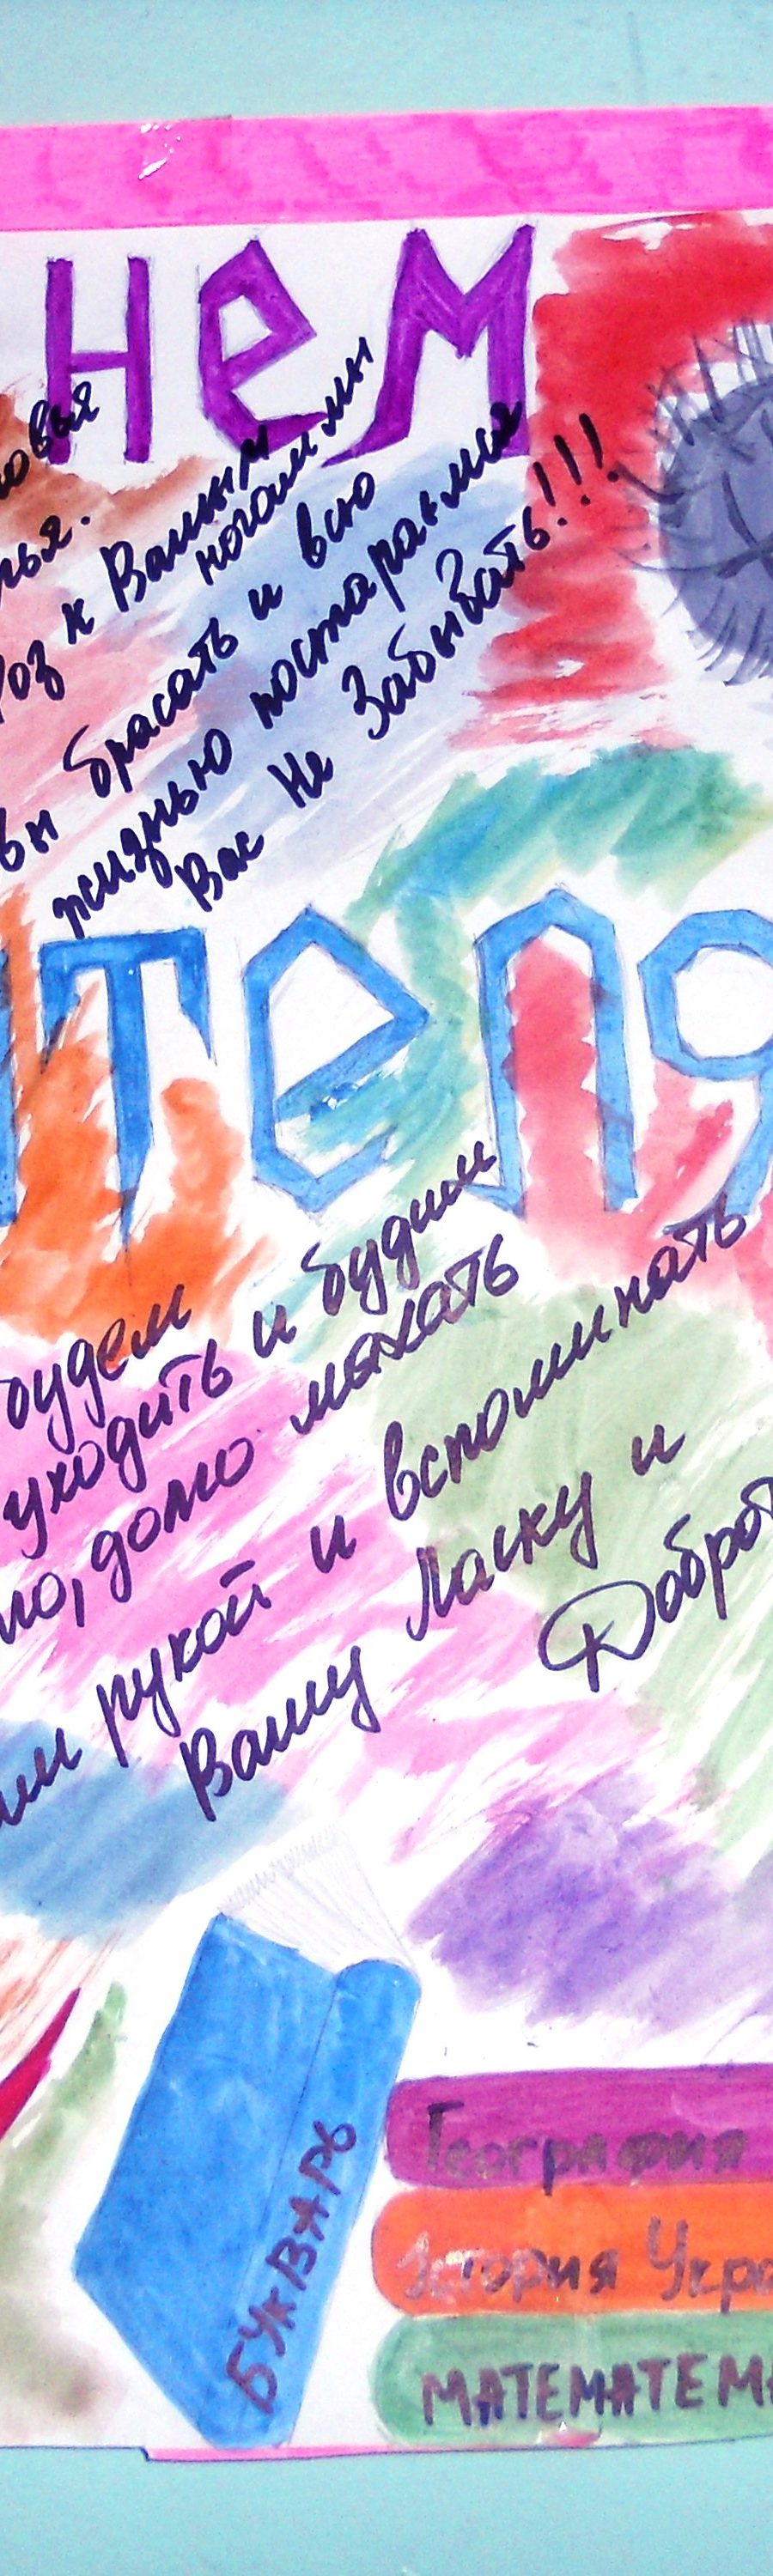 нем
овья
ья.
Роз к Вашим
ногам мы
вы брасать и всю
жизнью постараемся
Вас Не Забывать!!!
ителя
будем
уходить и будим
но, долго махать
ми рукой и вспоминать
Вашу Ласку и
Доброт
БУКВАРЬ
География
История Укра
МАТЕМАТЕМА